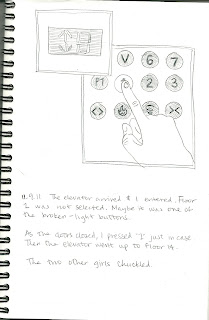 V G 7
P1 2 3
<> ><
11.9.11 The elevator arrived & I entered. Floor
1 was not selected. Maybe it was one of
the broken-light buttons.
As the doors closed, I pressed "1" just in case.
Then the elevator went up to floor 14.
The two other girls chuckled.